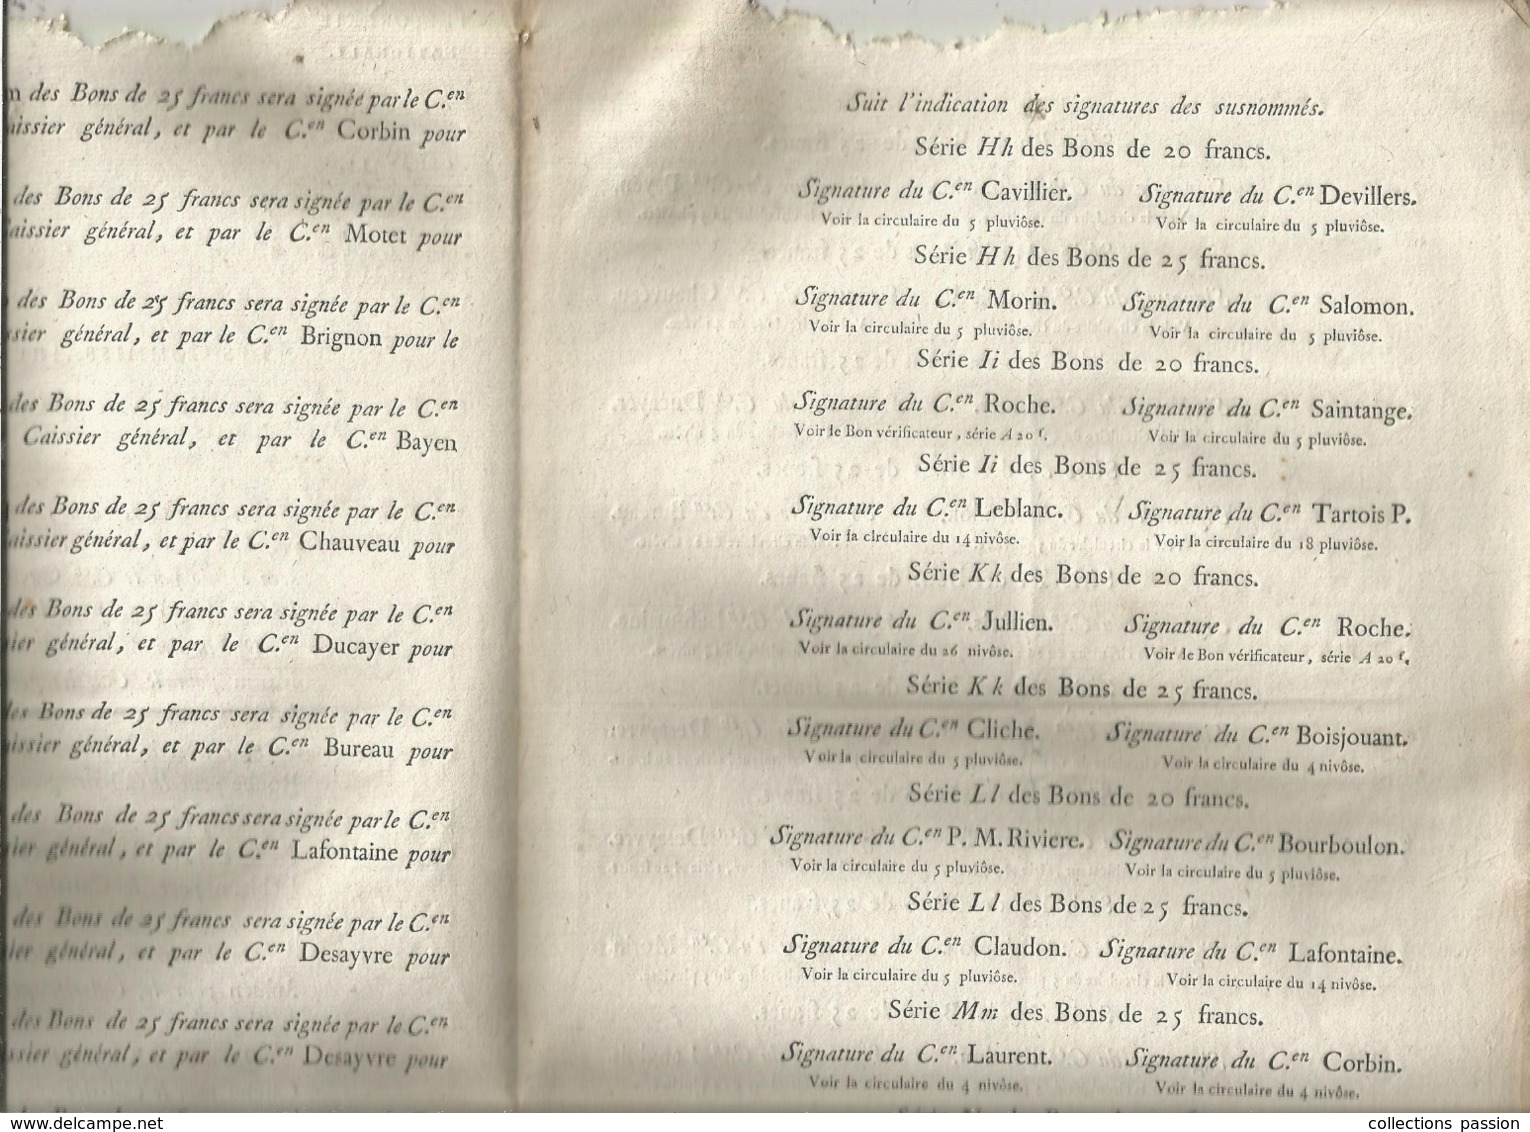 des Bons de 25 francs sera signée par le C.en
aissier général, et par le C.en Corbin pour
des Bons de 25 francs sera signée par le C.en
aissier général, et par le C.en Motet pour
des Bons de 25 francs sera signée par le C.en
ssier général, et par le C.en Brignon pour le
des Bons de 25 francs sera signée par le C.en
Caissier général, et par le C.en Bayen
des Bons de 25 francs sera signée par le C.en
aissier général, et par le C.en Chauveau pour
des Bons de 25 francs sera signée par le C.en
ier général, et par le C.en Ducayer pour
des Bons de 25 francs sera signée par le C.en
aissier général, et par le C.en Bureau pour
des Bons de 25 francs sera signée par le C.en
ier général, et par le C.en Lafontaine pour
des Bons de 25 francs sera signée par le C.en
ier général, et par le C.en Desayvre pour
des Bons de 25 francs sera signée par le C.en
ssier général, et par le C.en Desayvre pour
Suit l'indication des signatures des susnommés.
Série Hh des Bons de 20 francs.
Signature du C.en Cavillier. Signature du C.en Devillers.
Voir la circulaire du 5 pluviôse. Voir la circulaire du 5 pluviôse.
Série Hh des Bons de 25 francs.
Signature du C.en Morin. Signature du C.en Salomon.
Voir la circulaire du 5 pluviôse. Voir la circulaire du 5 pluviôse.
Série Ii des Bons de 20 francs.
Signature du C.en Roche. Signature du C.en Saintange.
Voir le Bon vérificateur, série A 20 f. Voir la circulaire du 5 pluviôse.
Série Ii des Bons de 25 francs.
Signature du C.en Leblanc. Signature du C.en Tartois P.
Voir la circulaire du 14 nivôse. Voir la circulaire du 18 pluviôse.
Série Kk des Bons de 20 francs.
Signature du C.en Jullien. Signature du C.en Roche.
Voir la circulaire du 26 nivôse. Voir le Bon vérificateur, série A 20 f.
Série Kk des Bons de 25 francs.
Signature du C.en Cliche. Signature du C.en Boisjouant.
Voir la circulaire du 5 pluviôse. Voir la circulaire du 4 nivôse.
Série Ll des Bons de 20 francs.
Signature du C.en P. M. Riviere. Signature du C.en Bourboulon.
Voir la circulaire du 5 pluviôse. Voir la circulaire du 5 pluviôse.
Série Ll des Bons de 25 francs.
Signature du C.en Claudon. Signature du C.en Lafontaine.
Voir la circulaire du 5 pluviôse. Voir la circulaire du 14 nivôse.
Série Mm des Bons de 25 francs.
Signature du C.en Laurent. Signature du C.en Corbin.
Voir la circulaire du 4 nivôse. Voir la circulaire du 4 nivôse.
www.delcampe.net
collections passion